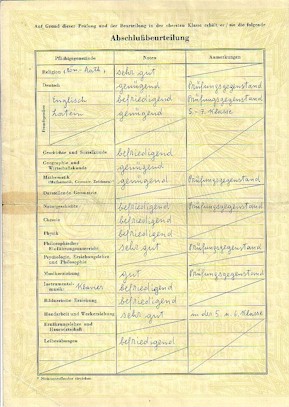 Auf Grund dieser Prüfung und der Beurteilung in der obersten Klasse erhält er/sie die folgende
Abschlußbeurteilung
Pflichtgegenstände Noten Anmerkungen
Religion (röm. kath.) sehr gut
Deutsch genügend Prüfungsgegenstand
Englisch befriedigend Prüfungsgegenstand
Latein genügend 5.-7. Klasse
Geschichte und Sozialkunde befriedigend
Geographie und
Wirtschaftskunde genügend
Mathematik genügend Prüfungsgegenstand
Darstellende Geometrie
Naturgeschichte befriedigend Prüfungsgegenstand
Chemie befriedigend
Physik befriedigend
Philosophischer
Einführungsunterricht sehr gut Prüfungsgegenstand
Psychologie, Erziehungslehre
und Philosophie
Musikerziehung gut Prüfungsgegenstand
Instrumental-
musik: Klavier befriedigend
Bildnerische Erziehung befriedigend
Handarbeit und Werkerziehung sehr gut in der 5. u. 6. Klasse
Ernährungslehre und
Hauswirtschaft
Leibesübungen befriedigend